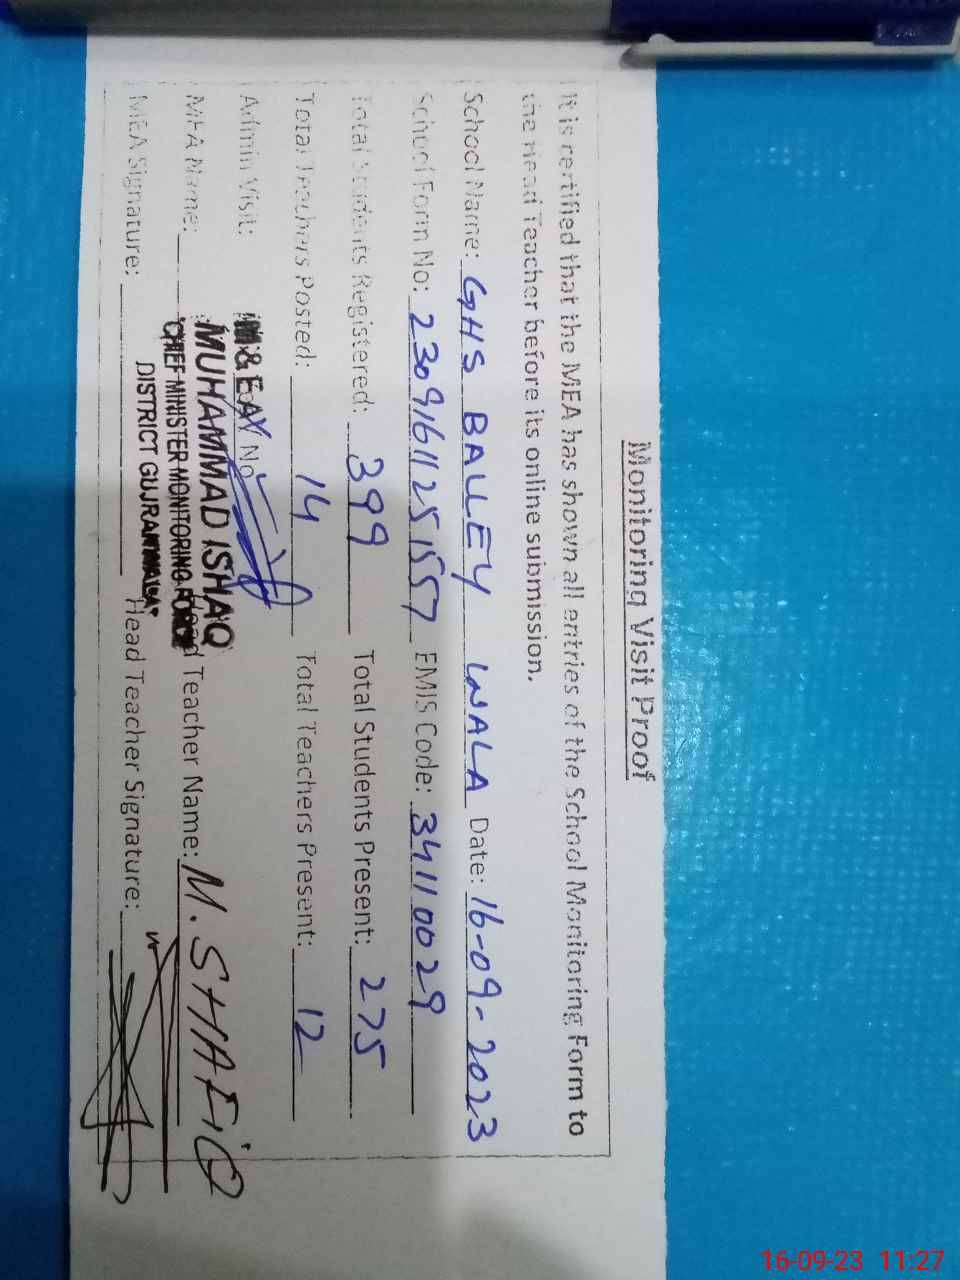 Monitoring Visit Proof
It is certified that the MEA has shown all entries of the School Monitoring Form to
the Head Teacher before its online submission.
School Name: GHS BALLEY WALA Date: 16-09-2023
School Form No: 23091611251557 EMIS Code: 34110029
Total Students Registered: 399 Total Students Present: 275
Total Teachers Posted: 14 Total Teachers Present: 12
Admin Visit: No
M&EA
MEA Name: MUHAMMAD ISHAQ Head Teacher Name: M. SHAFIQ
CHIEF MINISTER MONITORING FORCE
MEA Signature: DISTRICT GUJRANWALA Head Teacher Signature:
16-09-23 11:27